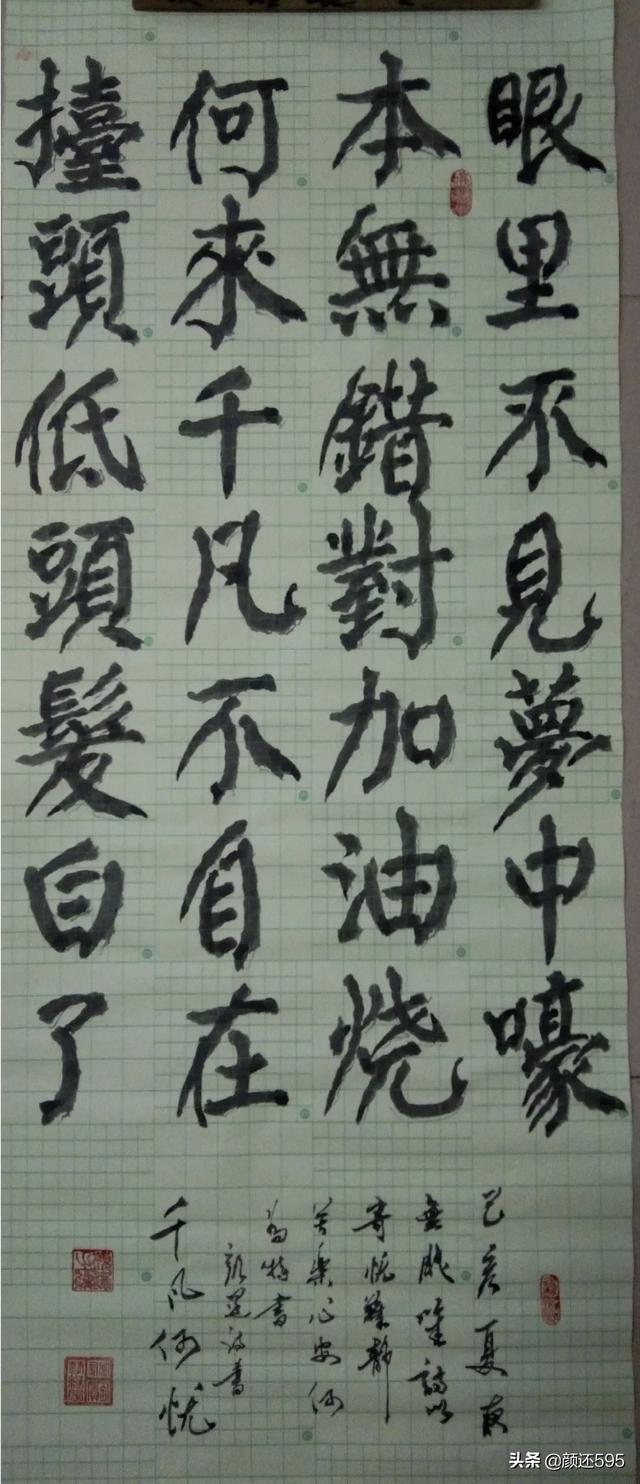 眼里不見夢中嚎
本無錯對加油烧
何來千凡不自在
擡頭低頭髮白了
己亥夏夜
無眠唯詩以
寄忧難静
苦樂心安何
為特書
颜还詩書
千凡何忧
头条 @颜还595